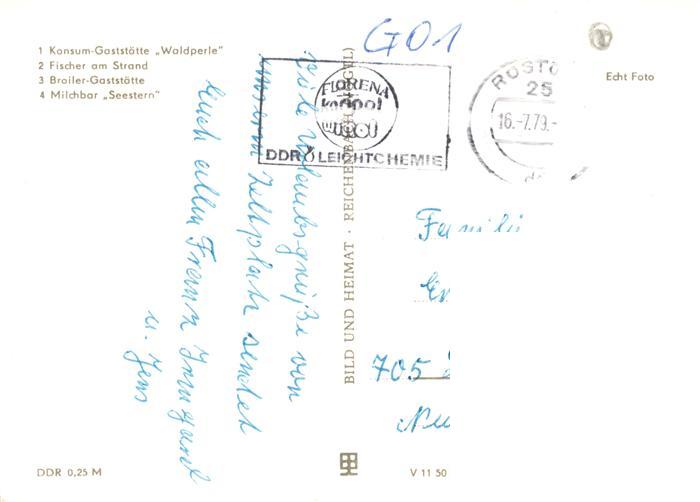 1 Konsum-Gaststätte „Waldperle"
2 Fischer am Strand
3 Broiler-Gaststätte
4 Milchbar „Seestern"
G01
FLORENA
DDR LEICHTCHEMIE
ROSTO
25
16.-7.79.-
Echt Foto
Viele Urlaubsgrüße von
unserm Zeltplatz sendet
Euch allen Franz Irmgard
u. Jens
BILD UND HEIMAT · REICHENBACH (VOGTL)
Familie
705
DDR 0,25 M
V 11 50